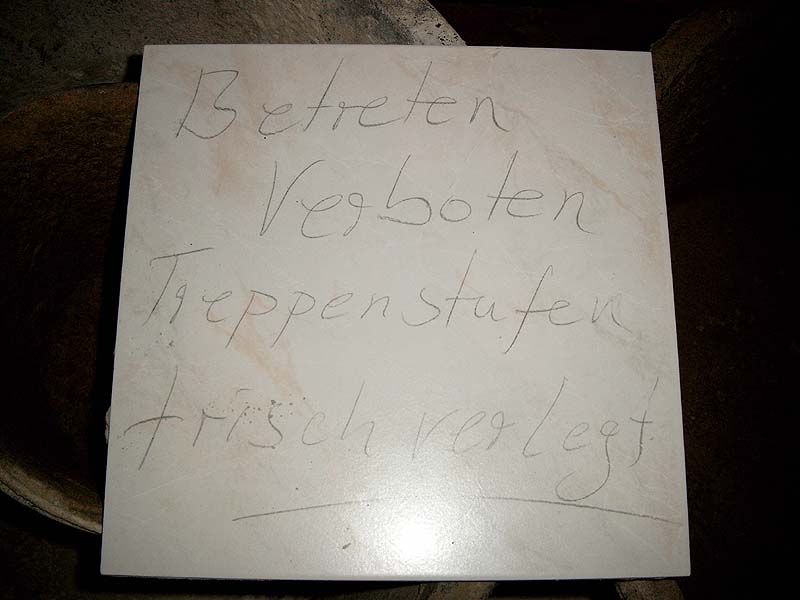 Betreten
Verboten
Treppenstufen
frisch verlegt